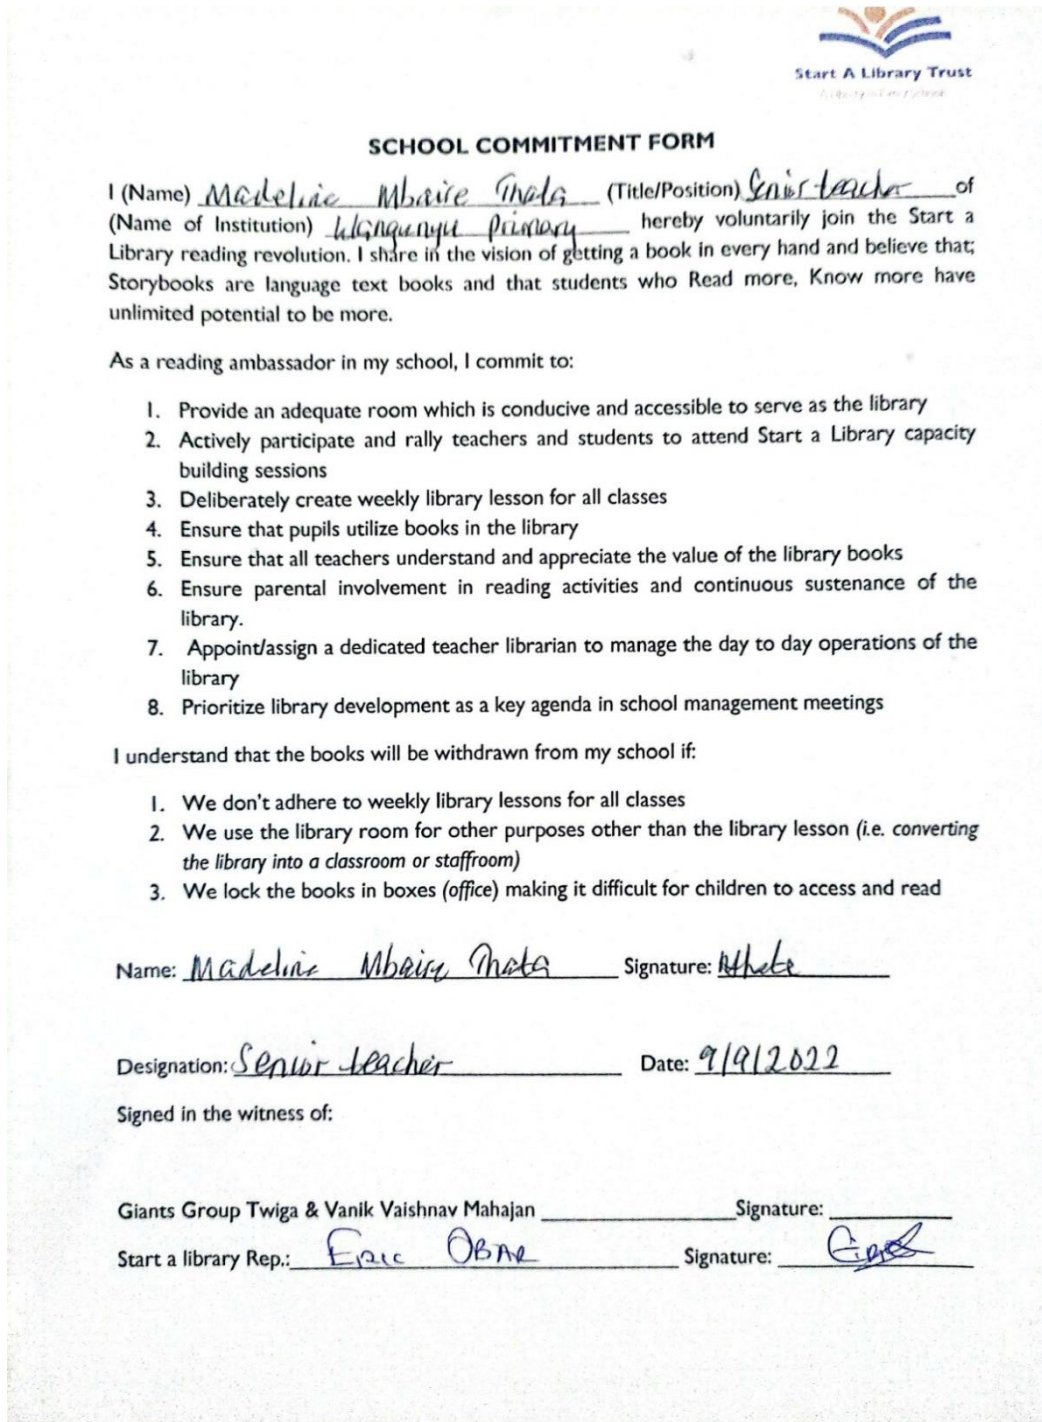 Start A Library Trust
SCHOOL COMMITMENT FORM
I (Name) Madeline Mbaire Thata (Title/Position) Senior teacher of
(Name of Institution) Primary hereby voluntarily join the Start a
Library reading revolution. I share in the vision of getting a book in every hand and believe that;
Storybooks are language text books and that students who Read more, Know more have
unlimited potential to be more.
As a reading ambassador in my school, I commit to:
1. Provide an adequate room which is conducive and accessible to serve as the library
2. Actively participate and rally teachers and students to attend Start a Library capacity
building sessions
3. Deliberately create weekly library lesson for all classes
4. Ensure that pupils utilize books in the library
5. Ensure that all teachers understand and appreciate the value of the library books
6. Ensure parental involvement in reading activities and continuous sustenance of the
library.
7. Appoint/assign a dedicated teacher librarian to manage the day to day operations of the
library
8. Prioritize library development as a key agenda in school management meetings
I understand that the books will be withdrawn from my school if:
1. We don't adhere to weekly library lessons for all classes
2. We use the library room for other purposes other than the library lesson (i.e. converting
the library into a classroom or staffroom)
3. We lock the books in boxes (office) making it difficult for children to access and read
Name: Madeline Mbaire Thata Signature:
Designation: Senior teacher Date: 9/9/2022
Signed in the witness of:
Giants Group Twiga & Vanik Vaishnav Mahajan Signature:
Start a library Rep.: Eric OBAR Signature: